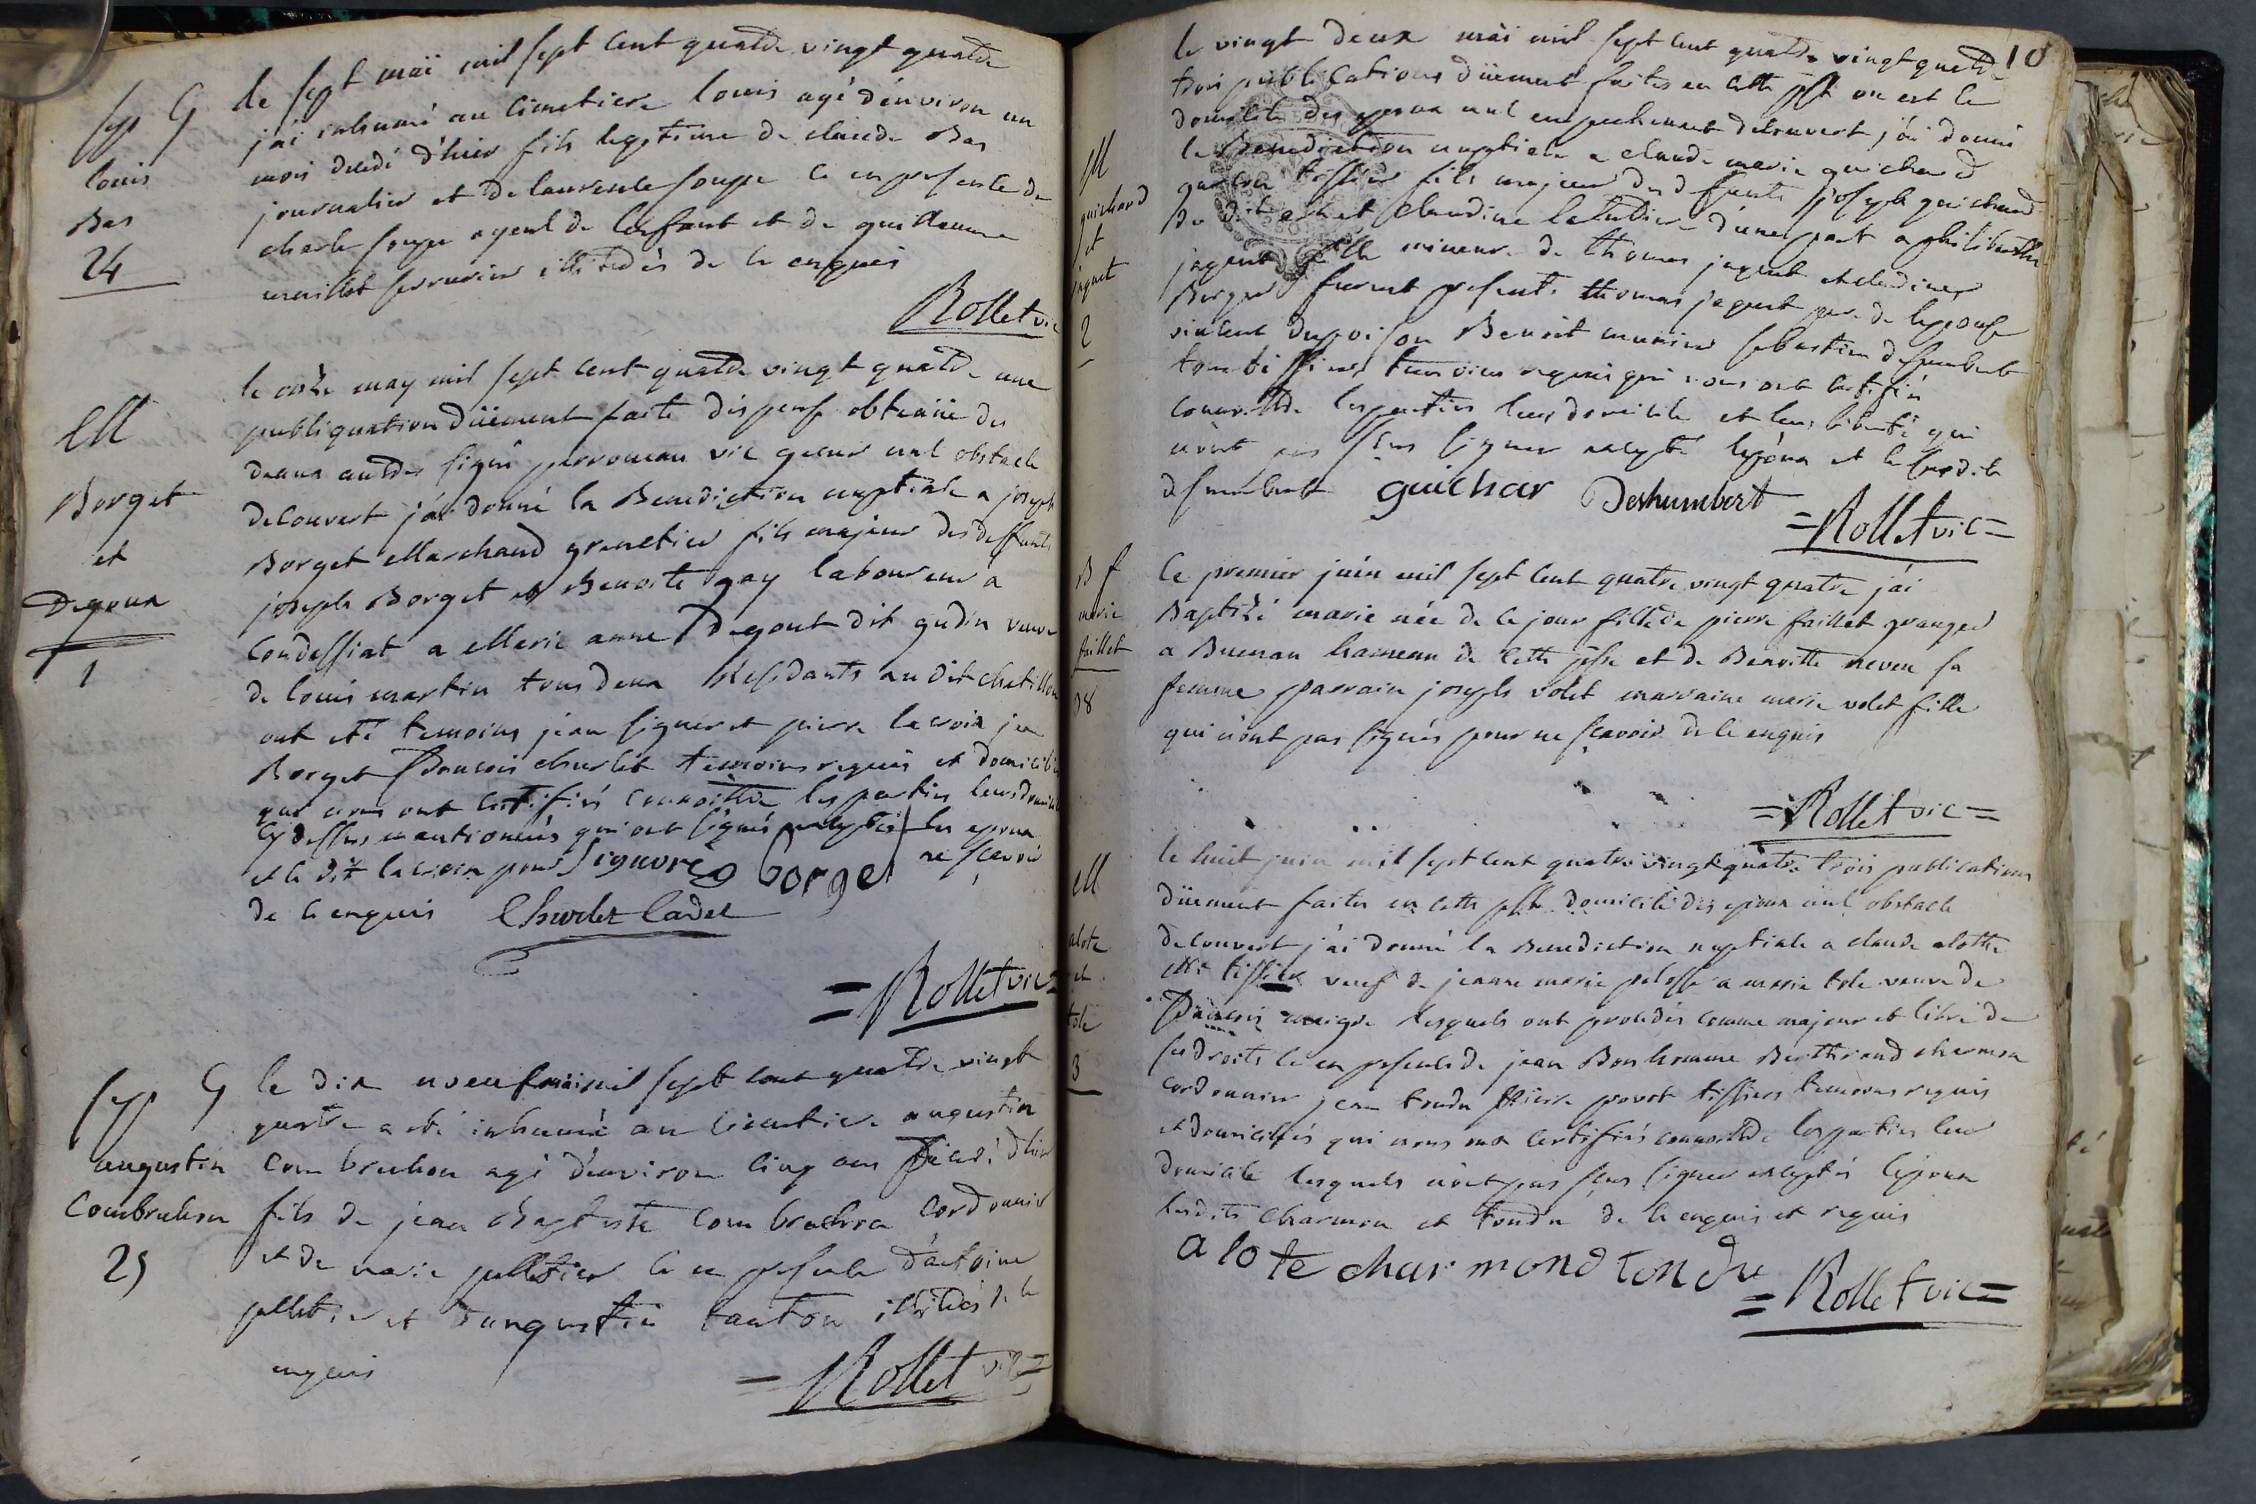 Sep G
Louis
Bas
24
le sept mai mil sept cent quatre vingt quatre
j'ai inhumé au cimetiere louis agé d'environ un
mois decedé d'hier fils legitime de claude Bas
journalier et de laurence soupe ce en presence de
charle soupe ayeul de l'enfant et de guillaume
serrurier illitérés de ce enquis
Rollet vic
M
Borget
et
Degoux
1
le onze may mil sept cent quatre vingt quatre une
publiquation düement faite dispense obtenüe des
deux autres signé perroneau vic gener nul obstacle
decouvert j'ai donné la Benediction nuptiale a joseph
Borget Marchand grenetier fils majeur des deffunts
joseph Borget et Benoite gay laboureur a
Condessiat a Marie anne Degout dit gudin veuve
de louis martin tous deux Residants au dit chatillon
ont été temoins jean signeret pierre lacroix jean
Borget François churlet temoins requis et domiciliés
qui nous ont certifiés connoittre les parties leurs domicile
cy dessus mentionnés qui ont signés exceptés les epoux
et le dit lacroix pour ne scavoir
de ce enquis
signoret Borget
Churlet Cadet
= Rollet vic =
Sep G
augustin
Combrichon
25
le dix neuf mai mil sept cent quatre vingt
quatre a eté inhumé au cimetiere augustin
combrichon agé d'environ cinq ans décédé d'hier
fils de jean Baptiste combrichon cordonnier
et de marie pelletier ce en presence d'antoine
pelletier et d'augustin tanton illitérés de ce
enquis
= Rollet vic =
10
M
guichard
et
jaquet
2
le vingt deux mai mil sept cent quatre vingt quatre
trois publications düement faites en cette psse ou est le
domicile des epoux nul empechement decouvert j'ai donné
la Benediction nuptiale a claude marie guichard
garçon tissier fils majeur des defunts joseph guichard
du dit et claudine d'une part a philiberthe
jaquet fille mineure de thomas jaquet et claudine
Berger furent presents thomas jaquet pere de l'epouse
vincent Dupoison Benoit munier sebastien deshumbert
tous tissiers temoins requis qui nous ont certifiés
connoittre les parties leur domicile et leur liberté qui
n'ont pas sçus signer excepté l'epoux et le susdit
deshumbert
guichar Deshumbert
= Rollet vic =
B f
marie
faillet
38
Ce premier juin mil sept cent quatre vingt quatre j'ai
Baptizé marie née de ce jour fille de pierre faillet granger
a Buenan hameau de cette psse et de Benoitte neveu sa
femme parrain joseph volet marraine marie volet fille
qui n'ont pas signés pour ne sçavoir de ce enquis
= Rollet vic =
M
alote
et
tole
3
le huit juin mil sept cent quatre vingt quatre trois publications
düement faites en cette psse domicile des epoux nul obstacle
decouvert j'ai donné la Benediction nuptiale a claude alotte
tissier veuf de jeanne marie pelosse a marie tole veuve de
François maigre lesquels ont procedés comme majeur et libre de
ses droits ce en presence de jean Bonhomme Berthrand charmon
cordonnier jean tondu Pierre provot tissiers temoins requis
et domiciliés qui nous ont certifiés connoittre les parties leur
domicile lesquels n'ont pas sçus signer exceptés l'epoux
lesdits charmon et tondu de ce enquis et requis
alote charmond tondu
= Rollet vic =